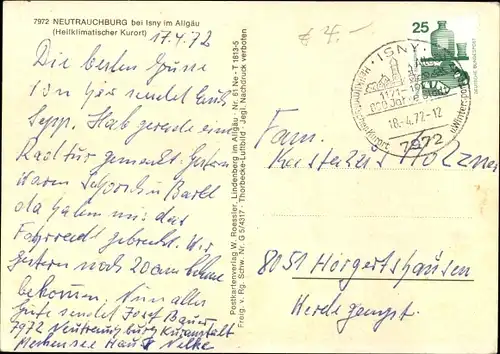 7972 NEUTRAUCHBURG bei Isny im Allgäu
(Heilklimatischer Kurort)
17.4.72
Die besten Grüsse
von hier sendet Euch
Sepp. Hab gerade eine
Radtur gemacht. Gestern
waren Schorsch u Barbl
da haben mir das
Fahrrad gebracht. Wir
gestern noch 20 cm Schnee
bekommen. Nun alles
Gute sendet Josef Bauer
7972 Neutrauchburg Kuranstalt
Haus Nelke
Postkartenverlag W. Roessler, Lindenberg im Allgäu · Nr. 61 Ne - T 1813-5
Freig. v. Rg. Schw. Nr. G 5/4317 · Thorbecke-Luftbild · Jegl. Nachdruck verboten
£ 4,-
25
DEUTSCHE BUNDESPOST
ISNY
1171-19
800 Jahre Stadt
18.-4.72-12
Kurort
u Wintersport
7972
Fam.
8051 Horgertshausen